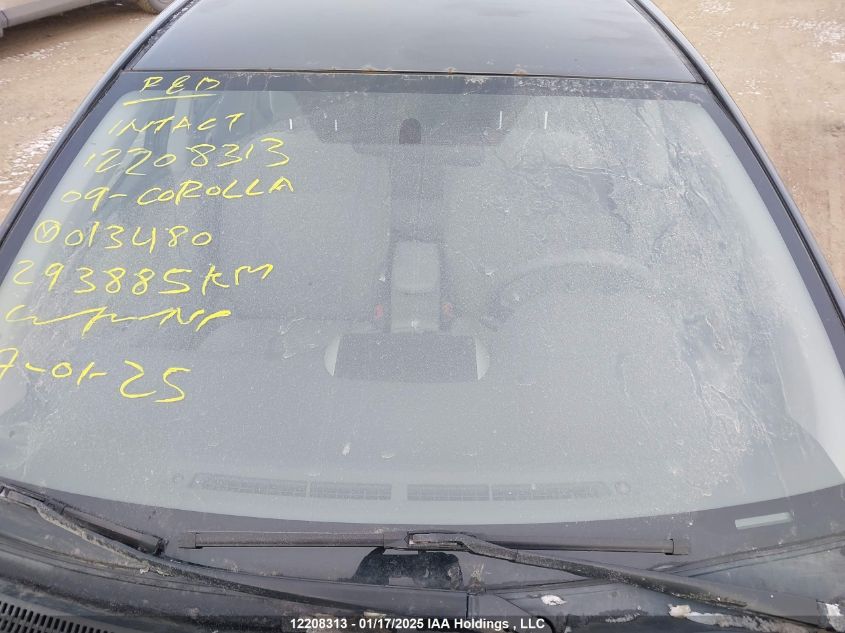 RED
INTACT
12208313
09-COROLLA
Ⓥ013480
293885KM
7-01-25
12208313 - 01/17/2025 IAA Holdings , LLC